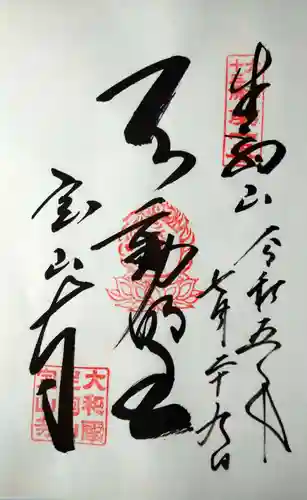 生駒山
令和五年
七月二十九日
不動明王
宝山寺
大和國
生駒山
寳山寺